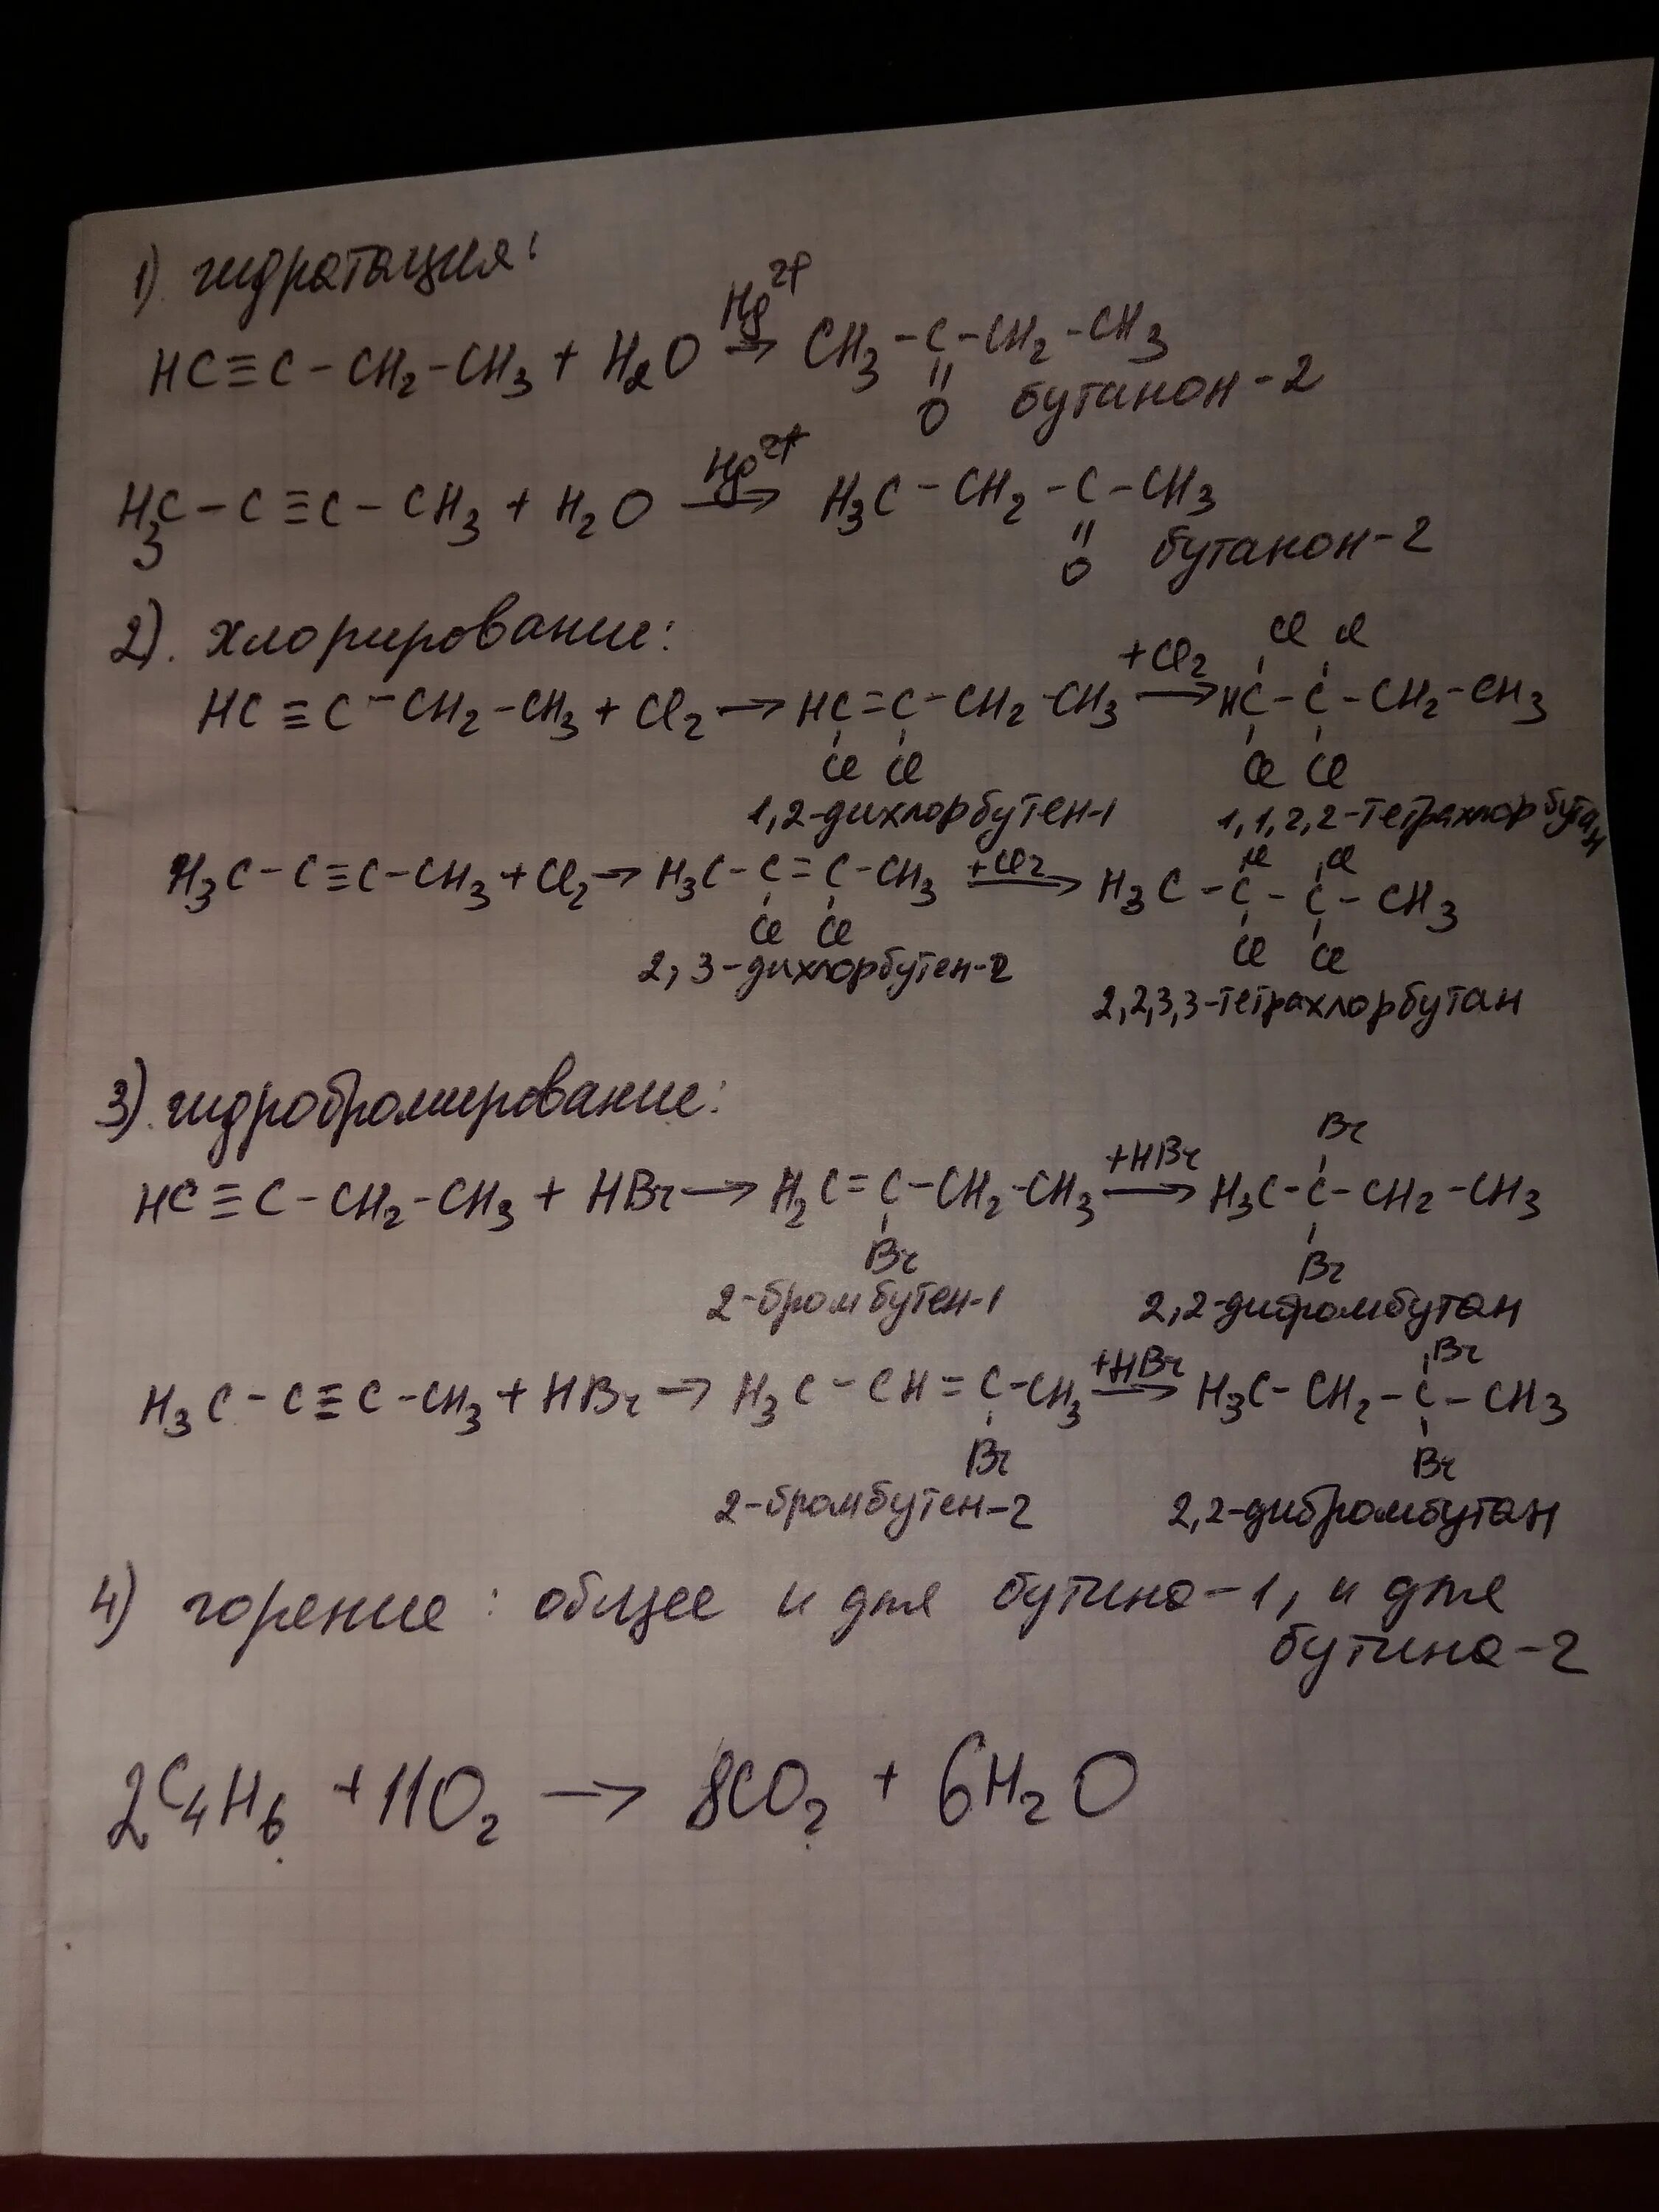 1) гидратация:
HC≡C-CH₂-CH₃ + H₂O →(Hg²⁺) CH₃-C-CH₂-CH₃
=O бутанон-2
H₃C-C≡C-CH₃ + H₂O →(Hg²⁺) H₃C-CH₂-C-CH₃
=O бутанон-2
2). хлорирование:
Cl Cl
HC≡C-CH₂-CH₃ + Cl₂ → HC=C-CH₂-CH₃ →(+Cl₂) HC-C-CH₂-CH₃
Cl Cl Cl Cl
1,2-дихлорбутен-1 1,1,2,2-тетрахлорбутан
Cl Cl
H₃C-C≡C-CH₃ + Cl₂ → H₃C-C=C-CH₃ →(+Cl₂) H₃C-C-C-CH₃
Cl Cl Cl Cl
2,3-дихлорбутен-2 2,2,3,3-тетрахлорбутан
3). гидробромирование:
Br
HC≡C-CH₂-CH₃ + HBr → H₂C=C-CH₂-CH₃ →(+HBr) H₃C-C-CH₂-CH₃
Br Br
2-бромбутен-1 2,2-дибромбутан
Br
H₃C-C≡C-CH₃ + HBr → H₃C-CH=C-CH₃ →(+HBr) H₃C-CH₂-C-CH₃
Br Br
2-бромбутен-2 2,2-дибромбутан
4) горение: общее и для бутина-1, и для
бутина-2
2C₄H₆ + 11O₂ → 8CO₂ + 6H₂O